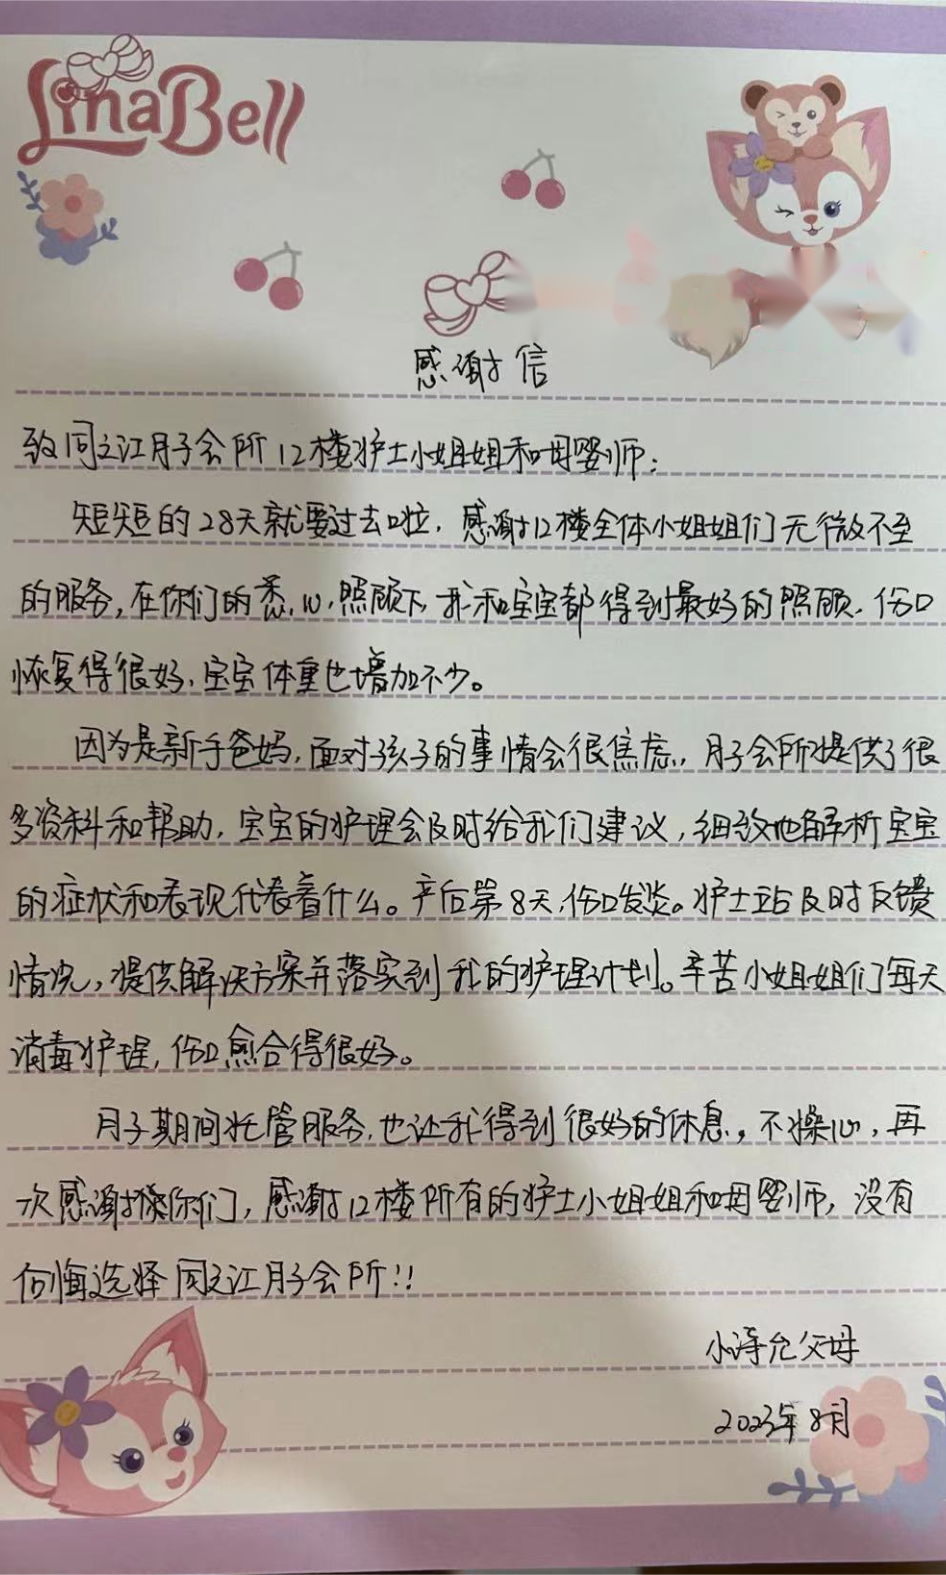 LinaBell
感谢信
致同之江月子会所12楼护士小姐姐和母婴师:
短短的28天就要过去啦,感谢12楼全体小姐姐们无微不至
的服务,在你们的悉心照顾下,我和宝宝都得到最好的照顾,伤口
恢复得很好,宝宝体重也增加不少。
因为是新手爸妈,面对孩子的事情会很焦虑,月子会所提供了很
多资料和帮助,宝宝的护理会及时给我们建议,细致地解析宝宝
的症状和表现代表着什么。产后第8天,伤口发炎。护士站及时反馈
情况,提供解决方案并落实到我的护理计划。辛苦小姐姐们每天
消毒护理,伤口愈合得很好。
月子期间托管服务,也让我得到很好的休息,不操心,再
次感谢你们,感谢12楼所有的护士小姐姐和母婴师,没有
后悔选择同之江月子会所!!
小诗允父母
2023年8月